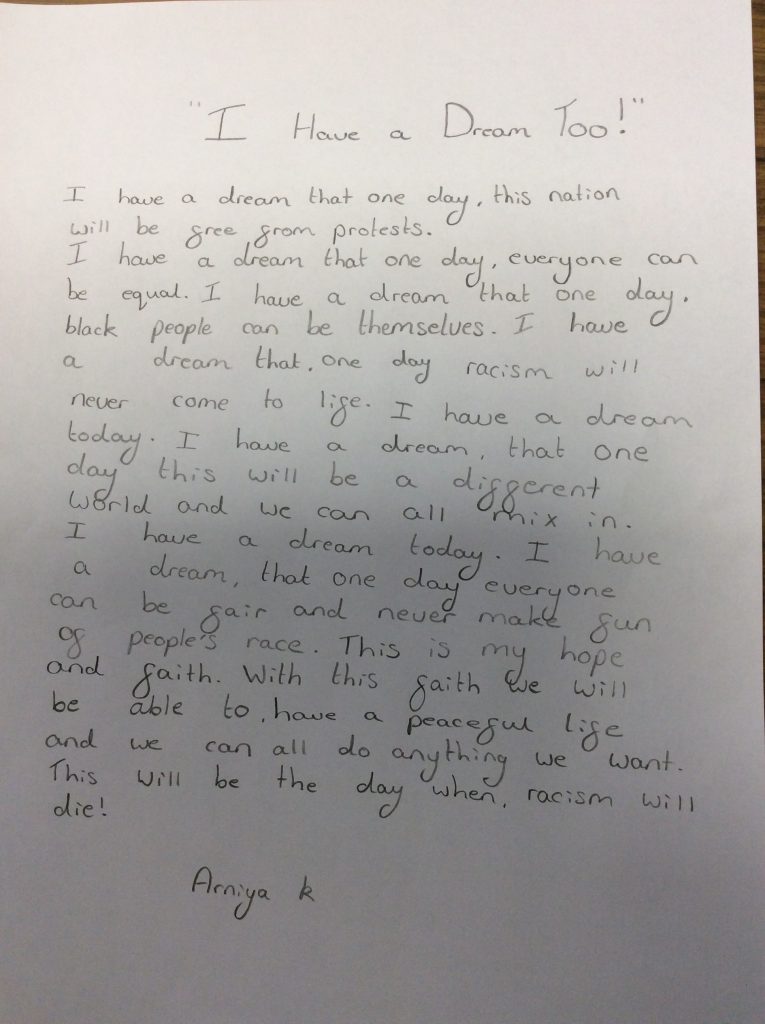 "I Have a Dream Too!"
I have a dream that one day, this nation
will be free from protests.
I have a dream that one day, everyone can
be equal. I have a dream that one day,
black people can be themselves. I have
a dream that, one day racism will
never come to life. I have a dream
today. I have a dream, that one
day this will be a different
world and we can all mix in.
I have a dream today. I have
a dream, that one day everyone
can be fair and never make fun
of people's race. This is my hope
and faith. With this faith we will
be able to, have a peaceful life
and we can all do anything we want.
This will be the day when, racism will
die!
Arniya k